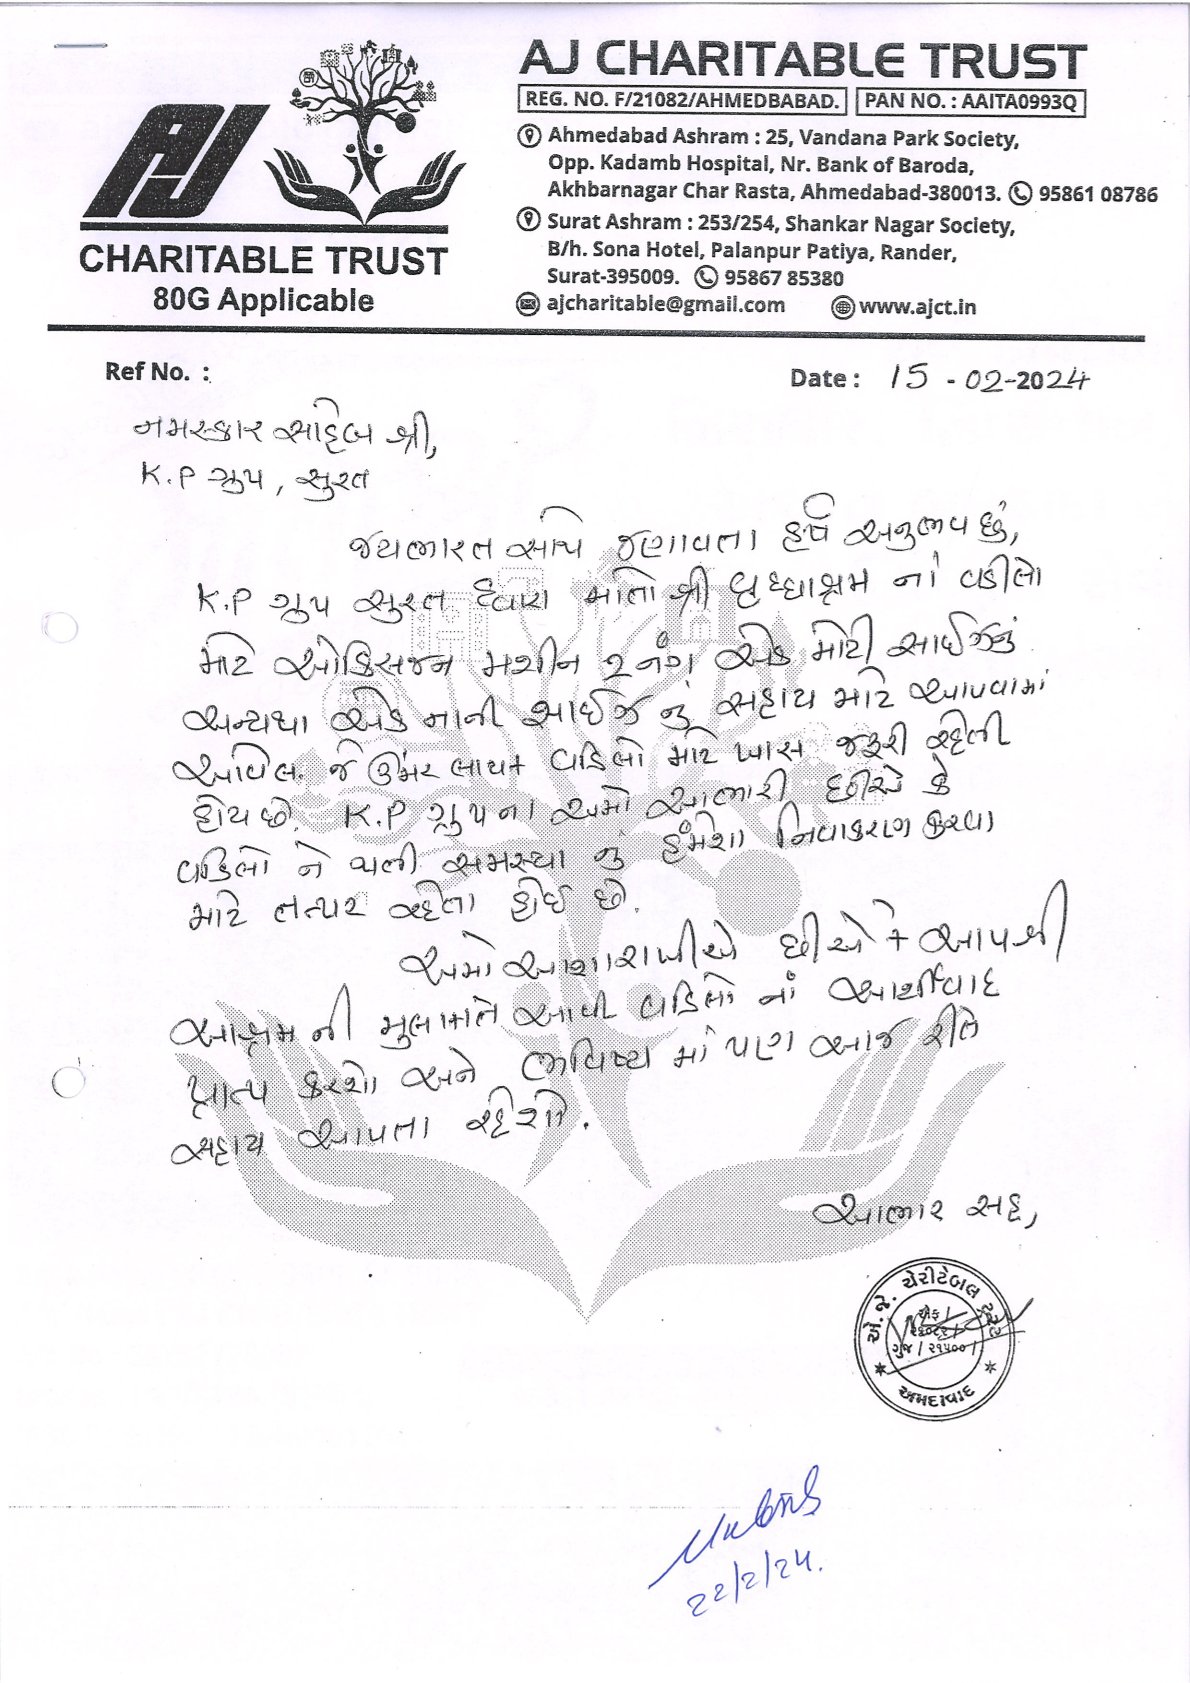 AJ
CHARITABLE TRUST
80G Applicable
AJ CHARITABLE TRUST
REG. NO. F/21082/AHMEDBABAD. PAN NO. : AAITA0993Q
Ahmedabad Ashram : 25, Vandana Park Society,
Opp. Kadamb Hospital, Nr. Bank of Baroda,
Akhbarnagar Char Rasta, Ahmedabad-380013. 95861 08786
Surat Ashram : 253/254, Shankar Nagar Society,
B/h. Sona Hotel, Palanpur Patiya, Rander,
Surat-395009. 95867 85380
ajcharitable@gmail.com www.ajct.in
Ref No. :
Date : 15 - 02-2024
નમસ્કાર સાહેબ શ્રી,
K.P ગ્રુપ, સુરત
જયભારત સાથે જણાવતા હર્ષ અનુભવ છું,
K.P ગ્રુપ સુરત દ્વારા માતો શ્રી વૃધ્ધાશ્રમ નાં વડીલો
માટે ઓક્સિજન મશીન ૨ નંગ એક મોટી સાઈઝનું
અન્યથા એક નાની સાઈઝ નું સહાય માટે આપવામાં
આવેલ. જે ઉંમર લાયક વડિલો માટે ખાસ જરૂરી રહેલી
હોય છે. K.P ગ્રુપ ના અમો આભારી છીએ કે
વડિલો ને થતી સમસ્યા નું હંમેશા નિવાકરણ કરવા
માટે તત્પર રહેતા હોઈ છે.
અમો આશા રાખીએ છીએ કે આપશ્રી
આશ્રમ ની મુલાકાતે આવી વડિલો નાં આર્શીવાદ
પ્રાપ્ત કરશો અને ભવિષ્ય માં પણ આજ રીતે
સહાય આપતા રહેશો.
આભાર સહ,
એ.જે. ચેરીટેબલ ટ્રસ્ટ
એફ /
ગુજ / ૨૧૫૦૦ /
અમદાવાદ
22/2/24.